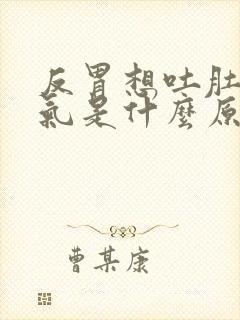 反胃想吐肚
氣是什麼原
曹某康